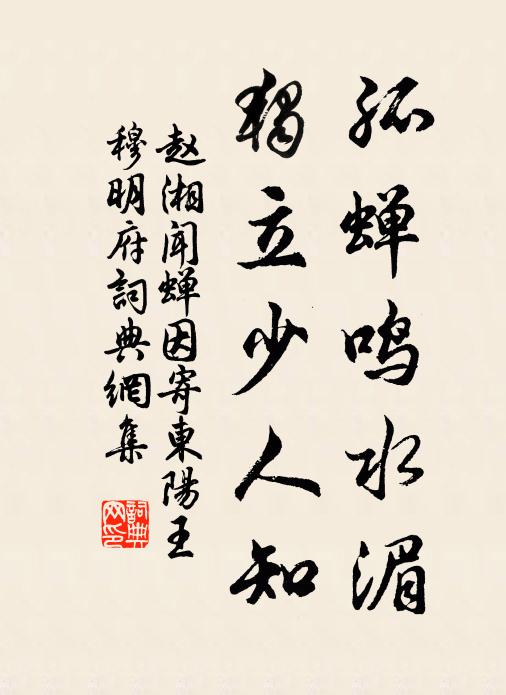 孤蝉鸣水湄
獨立少人知
赵湘闻蝉因寄東陽王
穆明府詞典網集
詞典网印